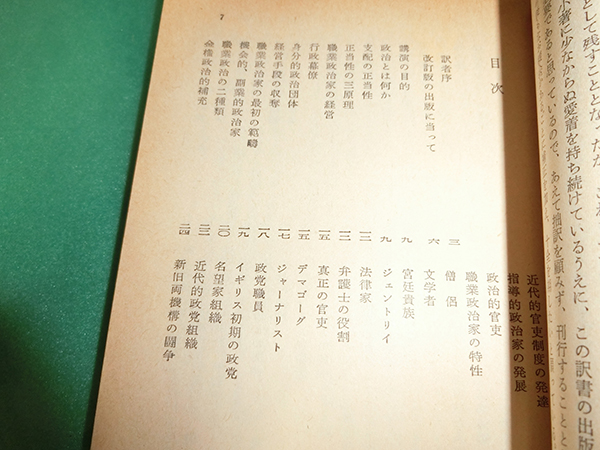 として残すこととなったが、
小著に少なからぬ愛着を持ち続けているうえに、この訳書の出版
要であると思っているので、あえて拙訳を顧みず、刊行することと
目次
訳者序 三
改訂版の出版に当って 六
講演の目的 九
政治とは何か 九
支配の正当性 一二
正当性の三原理 一二
職業政治家の経営 一五
行政幕僚 一五
身分的政治団体 一七
経営手段の収奪 一八
職業政治家の最初の範疇 一九
機会的、副業的政治家 二〇
職業政治の二種類 二二
金権政治的補充 二四
近代的官吏制度の発達
指導的政治家の発展
政治的官吏
職業政治家の特性
僧侶
文学者
宮廷貴族
ジェントリイ
法律家
弁護士の役割
真正の官吏
デマゴーグ
ジャーナリスト
政党職員
イギリス初期の政党
名望家組織
近代的政党組織
新旧両機構の闘争
7